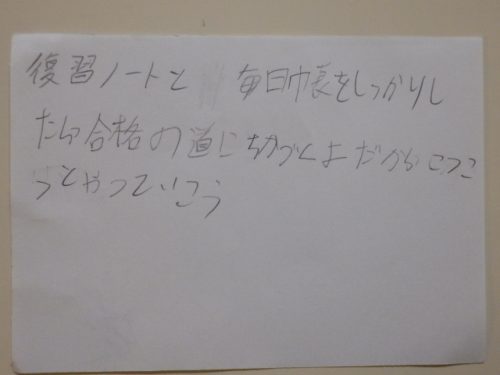 復習ノートと 毎日巾長をしっかりし
たら合格の道に ちかづくよだからこつこ
つとやっていこう